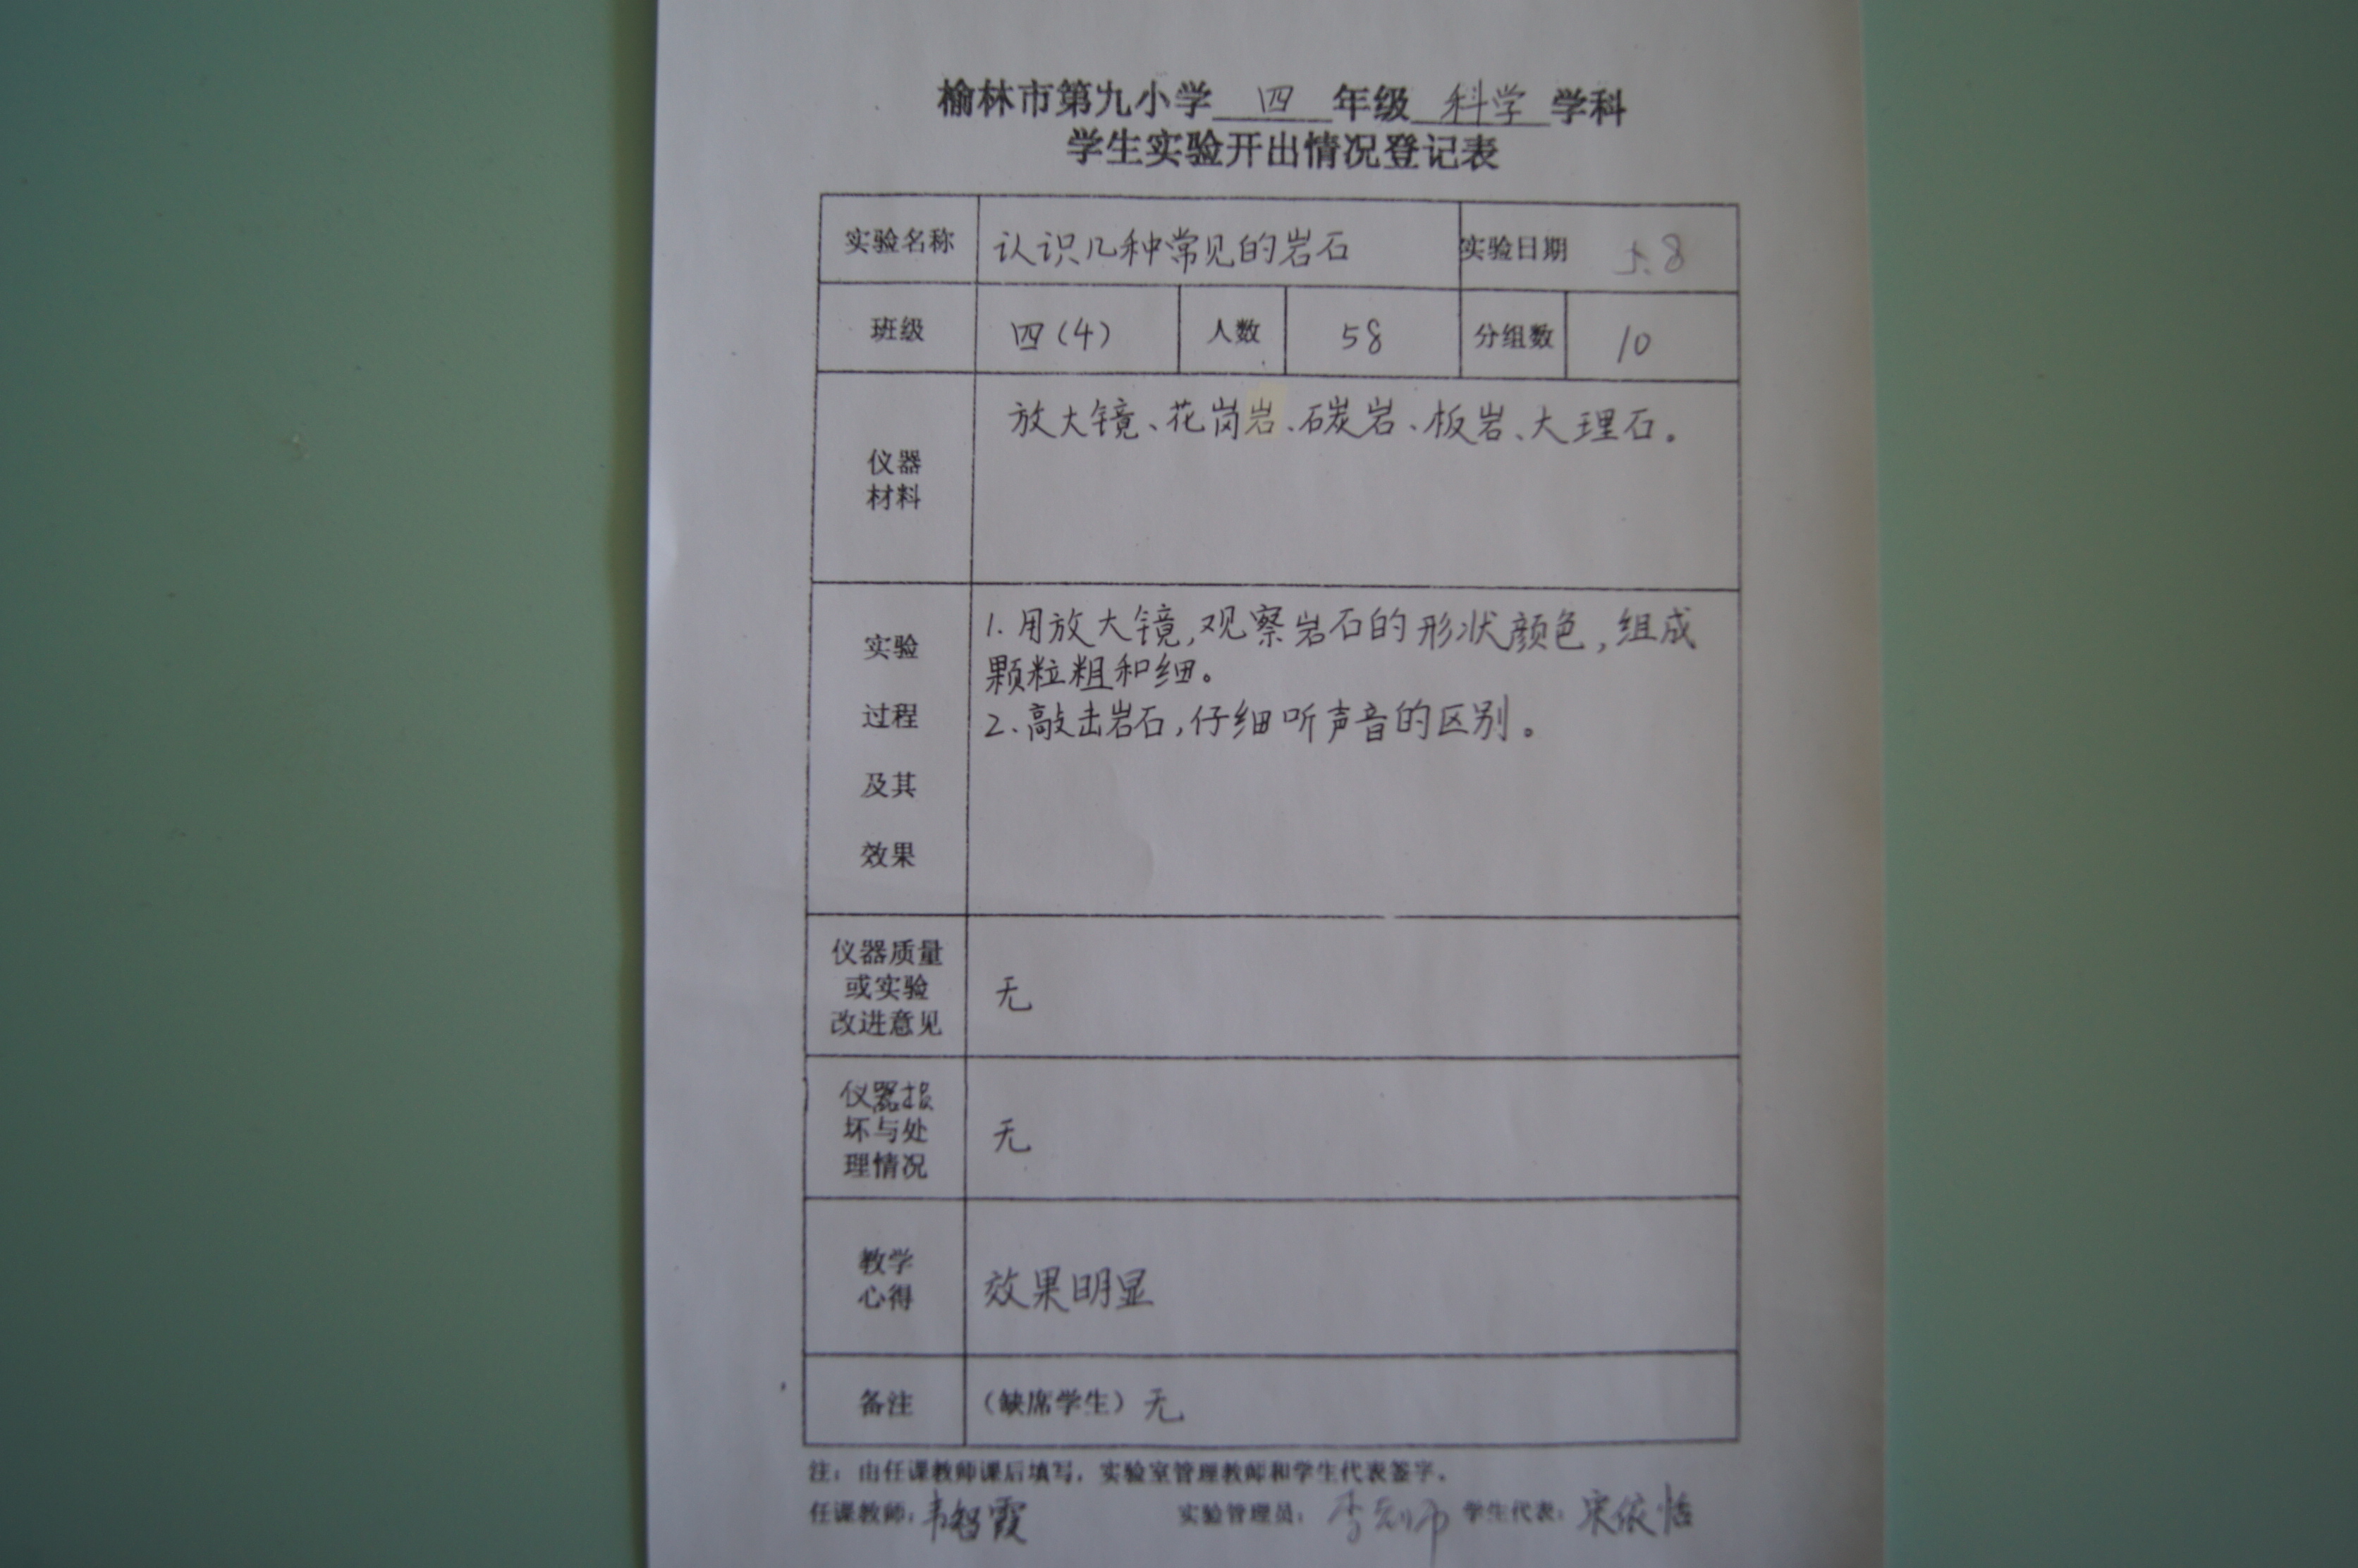 榆林市第九小学 四 年级 科学 学科
学生实验开出情况登记表
实验名称 认识几种常见的岩石 实验日期 5.8
班级 四(4) 人数 58 分组数 10
仪器
材料
放大镜、花岗岩、碳岩、板岩、大理石。
实验
过程
及其
效果
1.用放大镜,观察岩石的形状颜色,组成
颗粒粗和细。
2.敲击岩石,仔细听声音的区别。
仪器质量
或实验
改进意见
无
仪器损
坏与处
理情况
无
教学
心得
效果明显
备注 (缺席学生) 无
注:由任课教师课后填写,实验室管理教师和学生代表签字。
任课教师: 韦智霞 实验管理员: 李 学生代表: 宋依恬